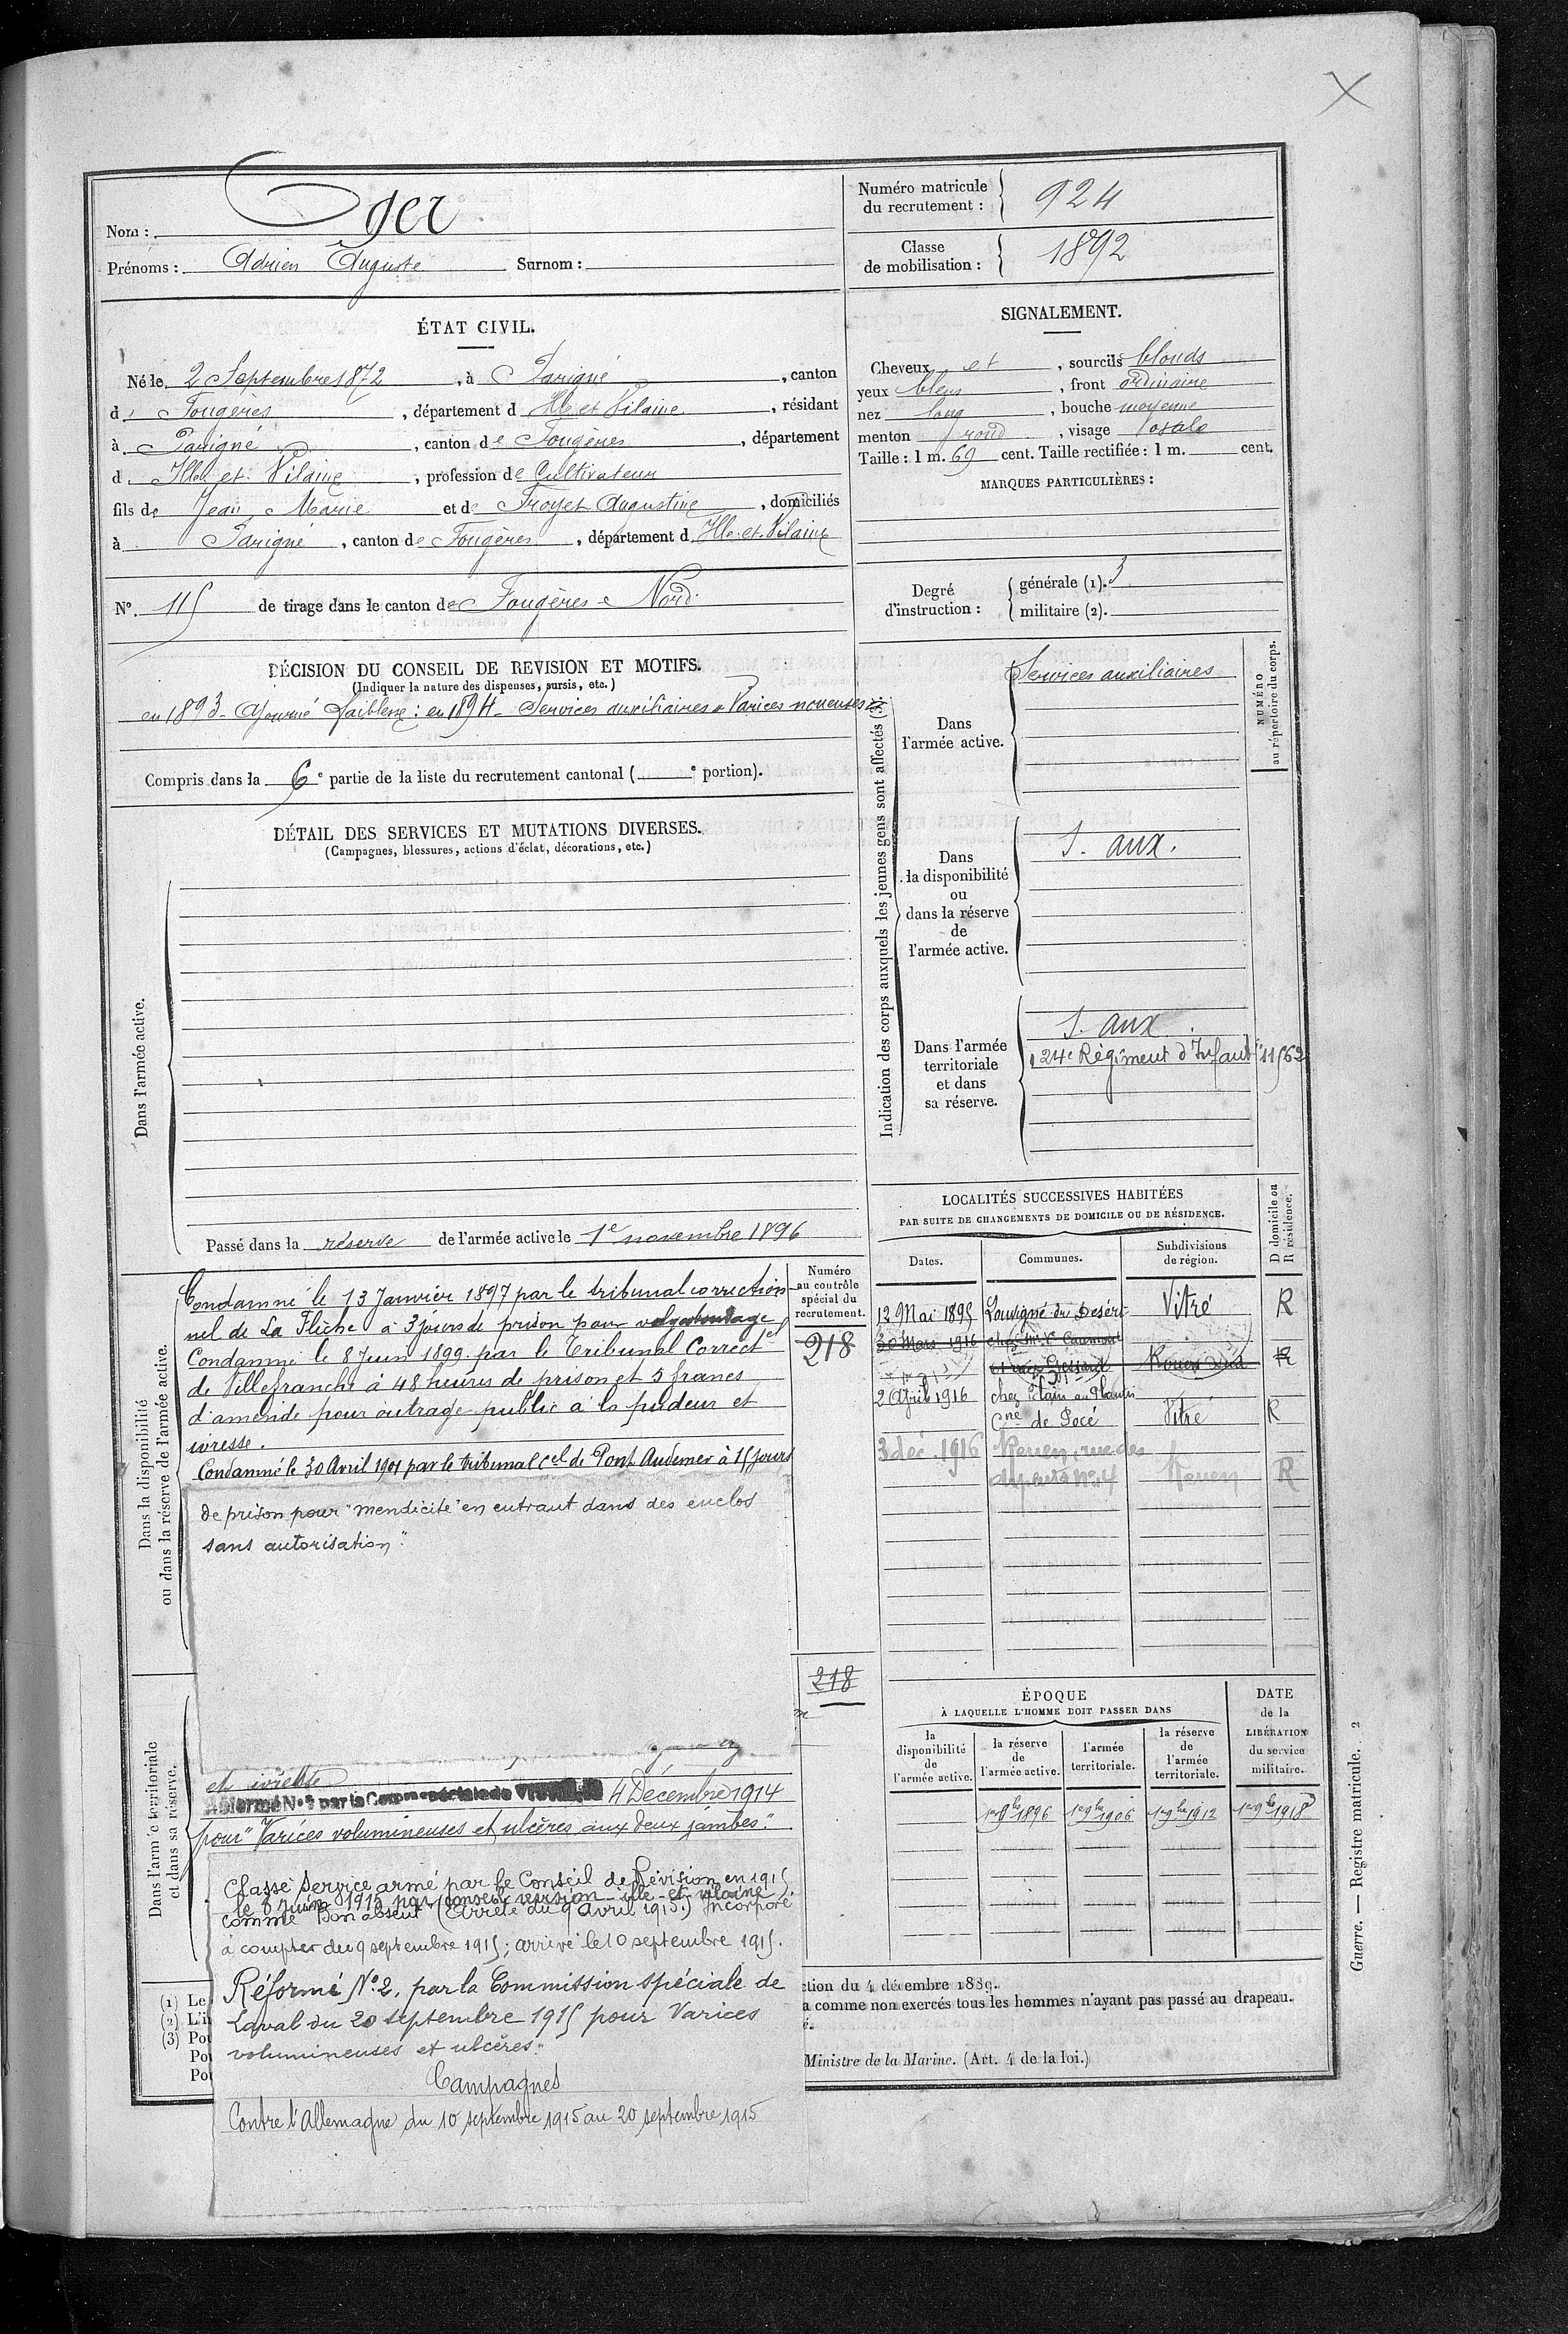 Nom : Oger
Prénoms : Adrien Auguste Surnom :
Numéro matricule
du recrutement : 924
Classe
de mobilisation : 1892
ÉTAT CIVIL.
Né le 2 Septembre 1872, à Parigné, canton
d Fougères, département d Ille et Vilaine, résidant
à Parigné, canton de Fougères, département
d Ille et Vilaine, profession de Cultivateur
fils de Jean Marie et de Froyet Augustine, domiciliés
à Parigné, canton de Fougères, département d Ille et Vilaine
N° 115 de tirage dans le canton de Fougères Nord
SIGNALEMENT.
Cheveux et, sourcils blonds
yeux bleus, front ordinaire
nez long, bouche moyenne
menton rond, visage ovale
Taille : 1 m. 69 cent. Taille rectifiée : 1 m. cent.
MARQUES PARTICULIÈRES :
Degré
d'instruction :
générale (1). 3
militaire (2).
DÉCISION DU CONSEIL DE REVISION ET MOTIFS.
(Indiquer la nature des dispenses, sursis, etc.)
en 1893 - Ajourné faiblesse : en 1894 - Services auxiliaires Varices noueuses
Compris dans la 6e partie de la liste du recrutement cantonal ( e portion).
DÉTAIL DES SERVICES ET MUTATIONS DIVERSES.
(Campagnes, blessures, actions d'éclat, décorations, etc.)
Dans l'armée active.
Passé dans la réserve de l'armée active le 1e novembre 1896
Indication des corps auxquels les jeunes gens sont affectés (3).
NUMÉRO
au répertoire du corps.
Dans
l'armée active.
Services auxiliaires
Dans
la disponibilité
ou
dans la réserve
de
l'armée active.
S. aux.
Dans l'armée
territoriale
et dans
sa réserve.
S. aux.
124e Régiment d'Infant 11562
Dans la disponibilité
ou dans la réserve de l'armée active.
Condamné le 13 Janvier 1897 par le tribunal correction
nel de La Flèche à 3 jours de prison pour vagabondage
Condamné le 8 Juin 1899 par le Tribunal Correctel
de Villefranche à 48 heures de prison et 5 francs
d'amende pour outrage public à la pudeur et
ivresse.
Condamné le 30 Avril 1901 par le tribunal Cel de Pont Audemer à 15 jours
de prison pour "mendicité en entrant dans des enclos
sans autorisation".
Numéro
au contrôle
spécial du
recrutement.
218
218
LOCALITÉS SUCCESSIVES HABITÉES
PAR SUITE DE CHANGEMENTS DE DOMICILE OU DE RÉSIDENCE.
Dates. Communes. Subdivisions
de région.
D domicile ou
R résidence.
12 Mai 1895 Louvigné du Désert Vitré R
30 Mars 1916 chez Mr Caumont
Rouen Sud R
2 Avril 1916 chez
Cne de Pocé Vitré R
3 déc. 1916 Rouen, rue des
n° 4 Rouen R
ÉPOQUE
À LAQUELLE L'HOMME DOIT PASSER DANS
la
disponibilité
de
l'armée active.
la réserve
de
l'armée active.
l'armée
territoriale.
la réserve
de
l'armée
territoriale.
DATE
de la
LIBÉRATION
du service
militaire.
1er 9bre 1896 1er 9bre 1906 1er 9bre 1912 1er 9bre 1918
Dans l'armée territoriale
et dans sa réserve.
et ivresse
Réformé N° 2 par la Common spéciale de 4 Décembre 1914
pour "Varices volumineuses et ulcères aux deux jambes."
Classé Service armé par le Conseil de Révision en 1915
le 8 juin 1915 par conseil revision ille-et-vilaine
comme "Bon absent" (Arrêté du 9 avril 1915.) Incorporé
à compter du 9 septembre 1915; arrivé le 10 septembre 1915.
Réformé N° 2, par la Commission spéciale de
Laval du 20 septembre 1915 pour Varices
volumineuses et ulcères."
Campagnes
Contre l'Allemagne du 10 septembre 1915 au 20 septembre 1915
(1) Le
(2) L'i
(3) Pou
Pou
Pou
ction du 4 décembre 1889.
a comme non exercés tous les hommes n'ayant pas passé au drapeau.
é.
Ministre de la Marine. (Art. 4 de la loi.)
Guerre. — Registre matricule. 2